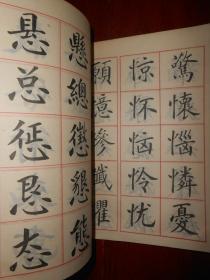 驚懷惱憐憂
惊怀恼怜忧
懸總懲懇態
悬总惩恳态